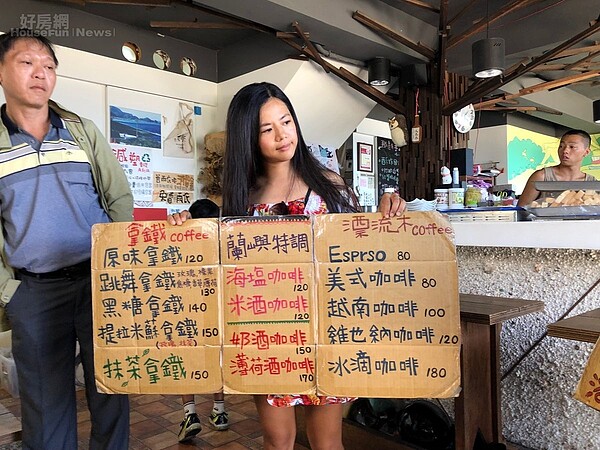 好房網
HouseFun News
拿鐵 coffee
原味拿鐵 120
跳舞拿鐵 玫瑰、榛果
130
黑糖拿鐵 140
提拉米蘇拿鐵 150
抹茶拿鐵 150
蘭嶼特調
海塩咖啡
120
米酒咖啡
120
奶酒咖啡
150
薄荷酒咖啡
170
漂流木 coffee
Esprso 80
美式咖啡 80
越南咖啡 100
維也納咖啡 120
冰滴咖啡 180
減塑